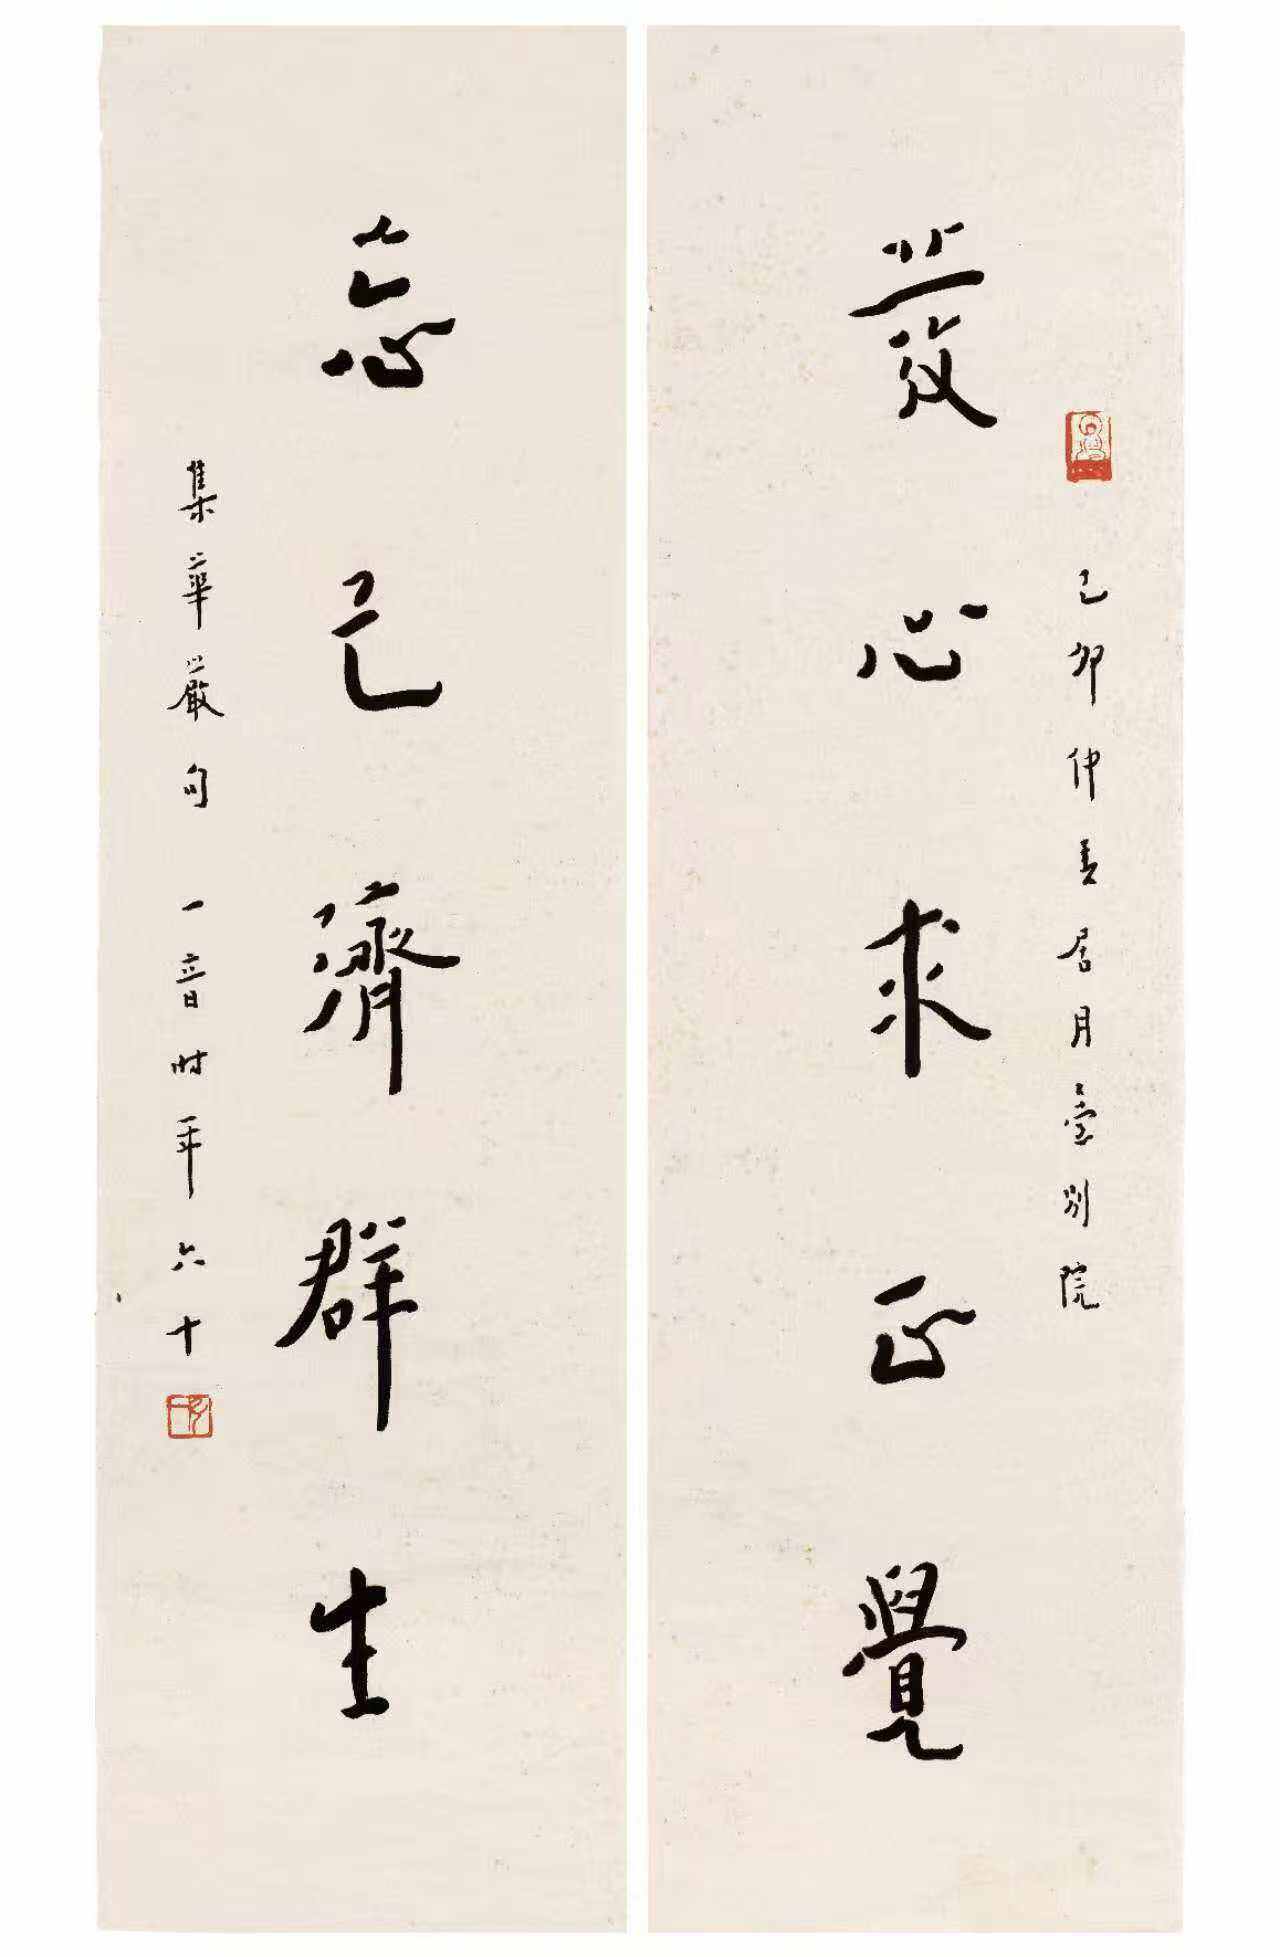 發心求正覺
己卯仲春居月臺別院
忘己濟群生
集華嚴句 一音時年六十